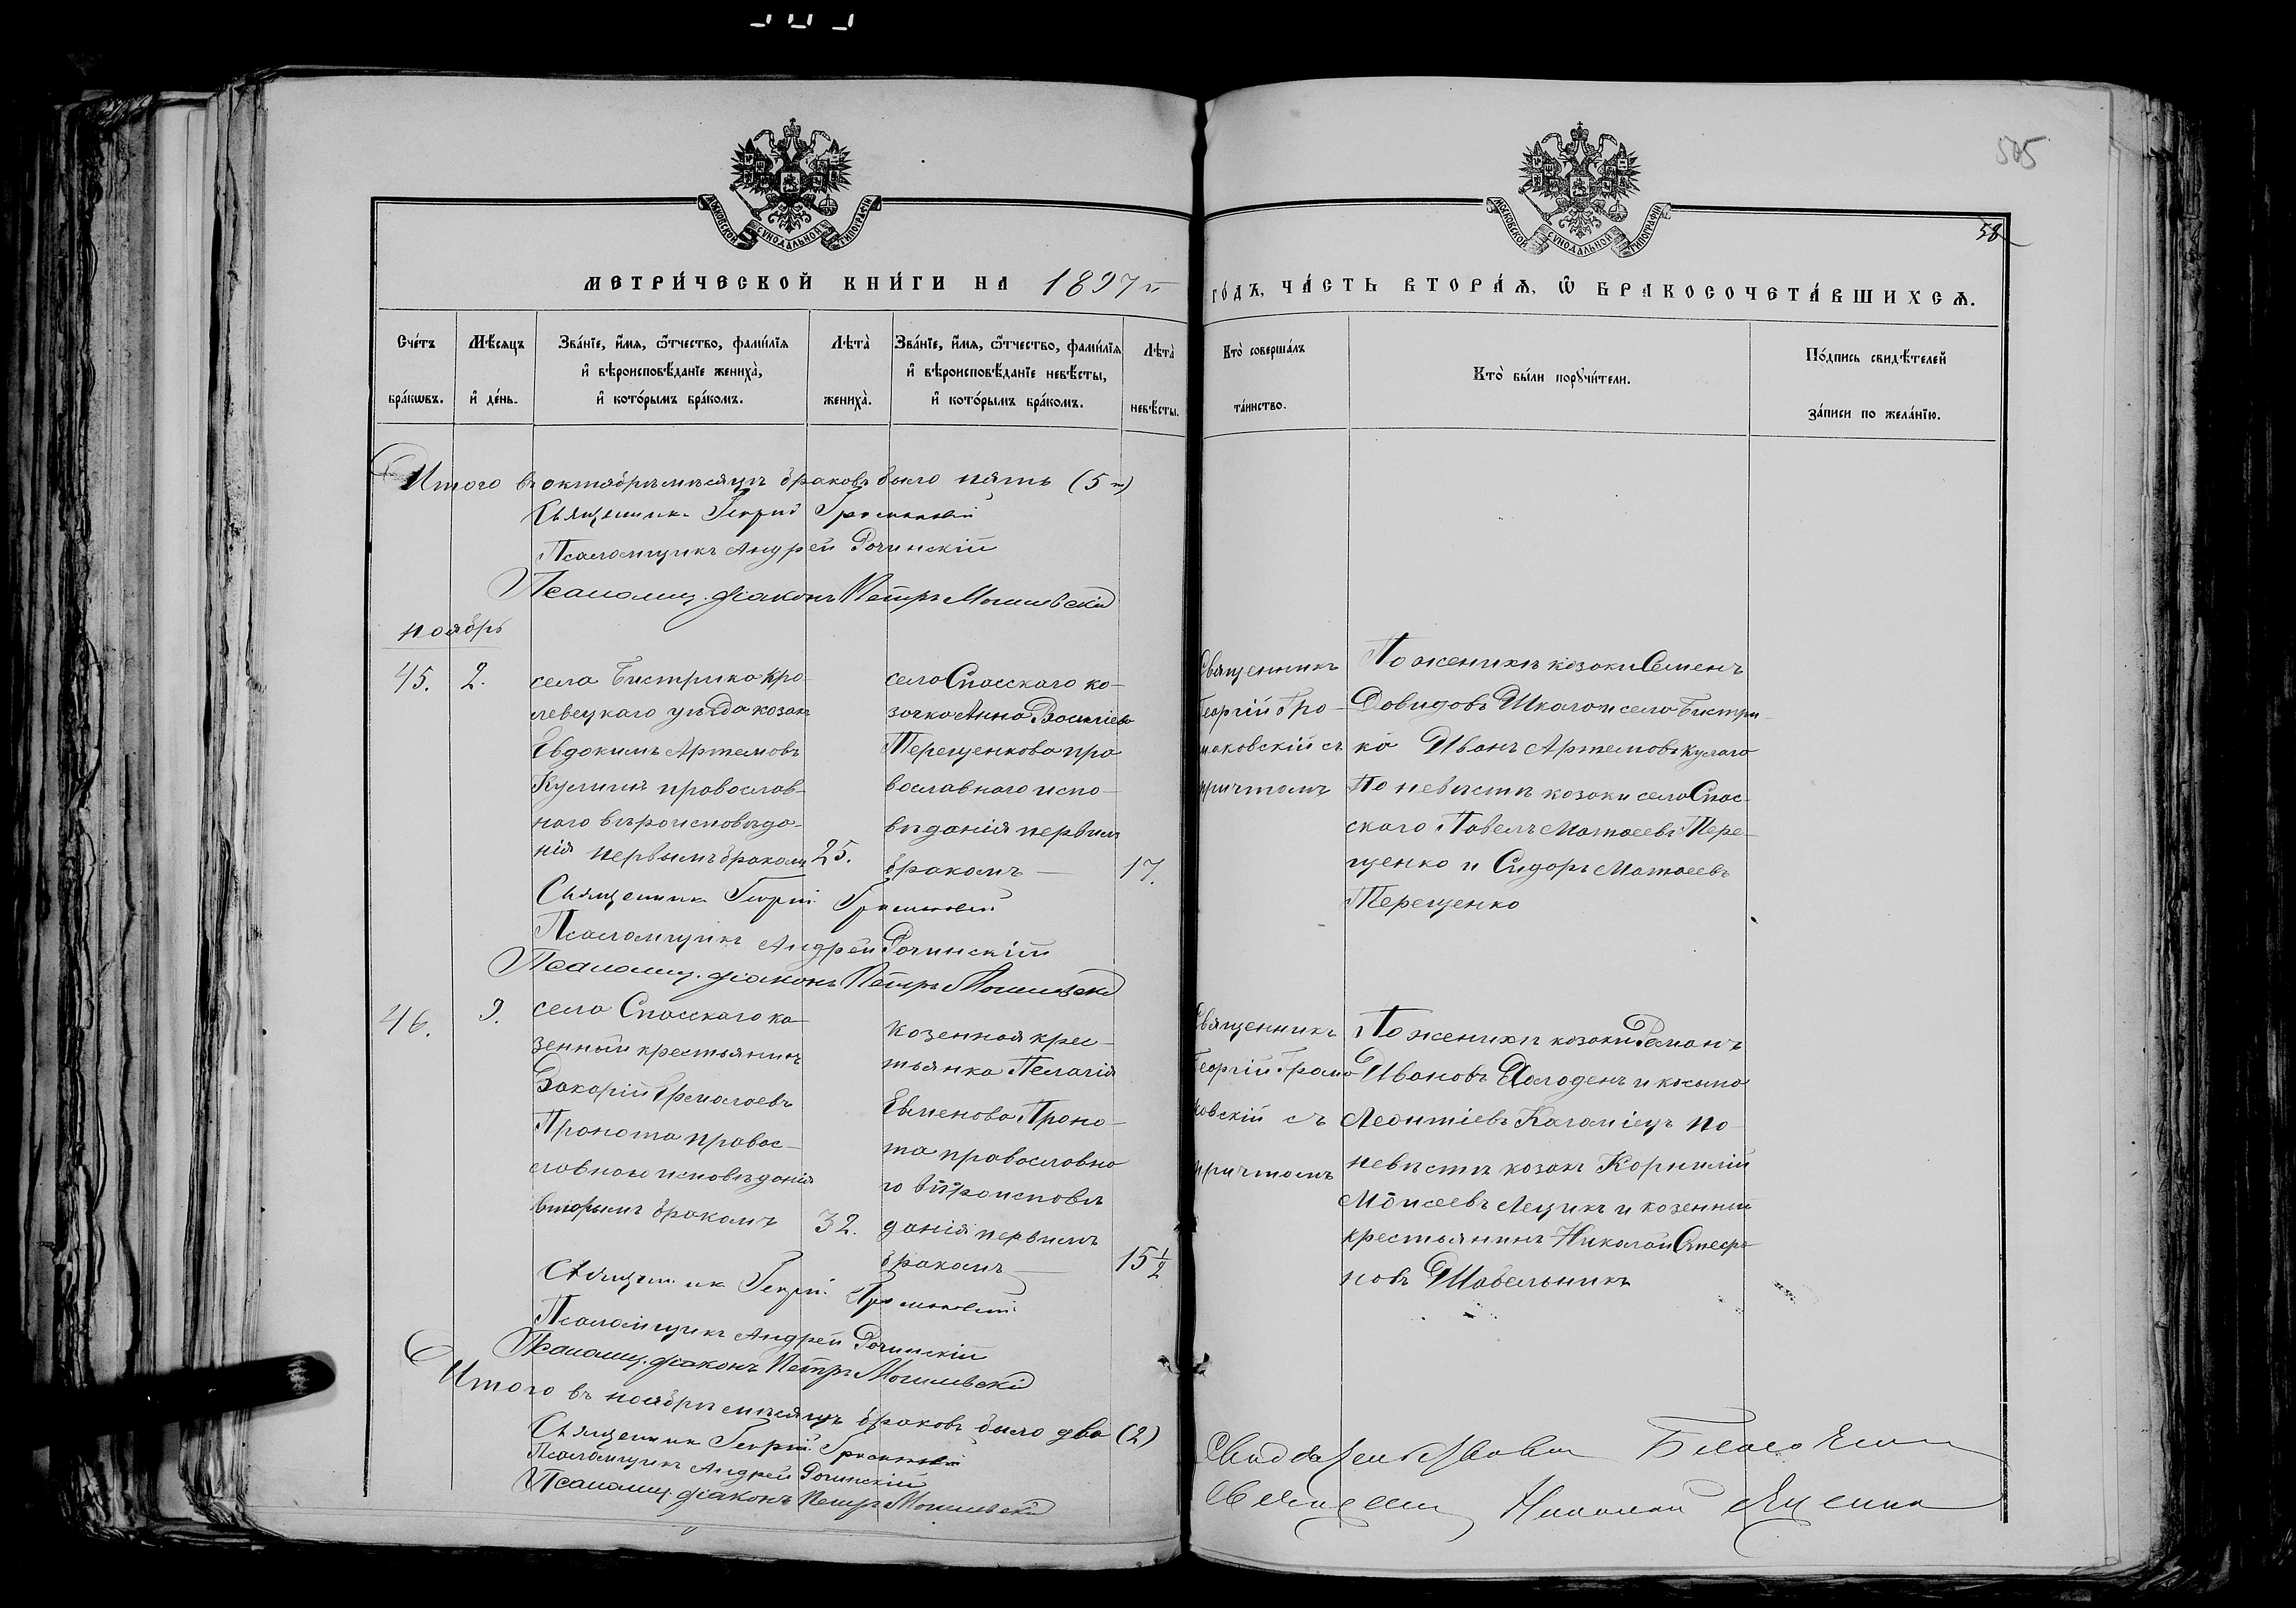 505
58
МОСКОВСКОЙ СѴНОДАЛЬНОЙ ТИПОГРАФІИ
МОСКОВСКОЙ СѴНОДАЛЬНОЙ ТИПОГРАФІИ
МЕТРИ́ЧЕСКОЙ КНИ́ГИ НА 1897 й ГО́ДЪ, ЧА́СТЬ ВТОРА́Ѧ, Ѽ БРАКОСОЧЕТА́ВШИХСѦ.
Сче́тъ бра́кѡвъ.
Мѣ́сяцъ и҆ де́нь.
Зва́нїе, и҆́мя, ѻ҆́тчество, фами́лїя и҆ вѣроисповѣ́данїе жениха̀, и҆ кото́рымъ бра́комъ.
Лѣта̀ жениха̀.
Зва́нїе, и҆́мя, ѻ҆́тчество, фами́лїя и҆ вѣроисповѣ́данїе невѣ́сты, и҆ кото́рымъ бра́комъ.
Лѣта̀ невѣ́сты.
Кто̀ соверша́лъ та́инство.
Кто̀ бы́ли порꙋчи́тели.
По́дпись свидѣ́телей за́писи по жела́нїю.
Итого въ октябрѣ мѣсяцѣ браковъ было пять (5)
Священникъ Георгій
Псаломщикъ Андрей Рочинскій
Псаломщ. діаконъ Петръ Могилевскій
ноябрь
45.
2.
села Бистрика Кро-
левецкаго уѣзда козакъ
Евдокимъ Артемовъ
православ-
наго вѣроисповѣда-
нія первымъ бракомъ
25.
села Спасскаго ко-
зачка Анна Василіева
Терещенкова пра
вославнаго испо-
вѣданія первымъ
бракомъ —
17.
Священникъ
Георгій Гро-
маковскій съ
причтомъ
По женихѣ козаки Семенъ
Давидовъ Шкала и села Бистри-
ка Иванъ Артемовъ Кулага
По невѣстѣ козаки села Спас-
скаго Павелъ Матвеевъ Тере-
щенко и Сидоръ Матвеевъ
Терещенко
Священникъ Георгій
Псаломщикъ Андрей Рочинскій
Псаломщ. діаконъ Петръ Могилевскій
46.
9.
села Спасскаго ка-
зенный крестьянинъ
Захарій Ермолаевъ
Пронота правос-
лавнаго исповѣданія
вторымъ бракомъ
32.
козенная крес-
тьянка Пелагія
Евменова Проно-
та православна
го вѣроисповѣ
данія первымъ
бракомъ —
15 ½
Священникъ
Георгій Грома
ковскій съ
причтомъ
По женихѣ козаки Романъ
Ивановъ Холоденъ и Косьма
Леонтіевъ по
невѣстѣ козакъ Корнилій
Моисеевъ Лещикъ и козенный
крестьянинъ Николай
новъ Шабельникъ
Священникъ Георгій
Псаломщикъ Андрей Рочинскій
Псаломщ. діаконъ Петръ Могилевскій
Итого въ ноябрѣ мѣсяцѣ браковъ было два (2)
Священникъ Георгій
Псаломщикъ Андрей Рочинскій
Псаломщ. діаконъ Петръ Могилевскій
Николай